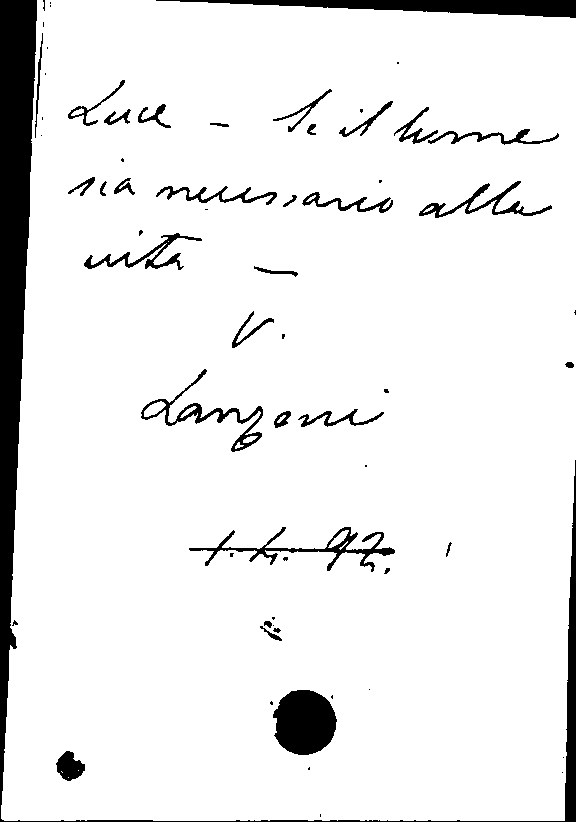 Luce - Se il lume
sia necessario alla
vita -
V.
Lanzoni
1. L. 92.